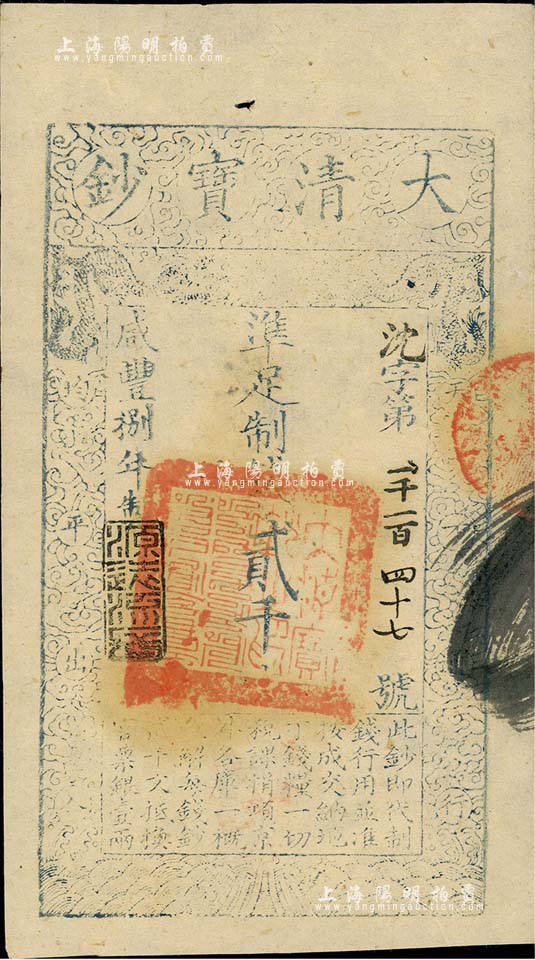 上海陽明拍賣
www.yangmingauction.com
大清寶鈔
沈字第一千一百四十七號
準足制錢貳千
咸豐捌年製
平
行
上海陽明拍賣
www.yangmingauction.com
此鈔即代制
錢行用並准
按成交納地
丁錢糧一切
稅課捐項京
外各庫一概
解每錢鈔
千文抵換
官票銀壹兩
上海陽明拍賣
www.yangmingauction.com